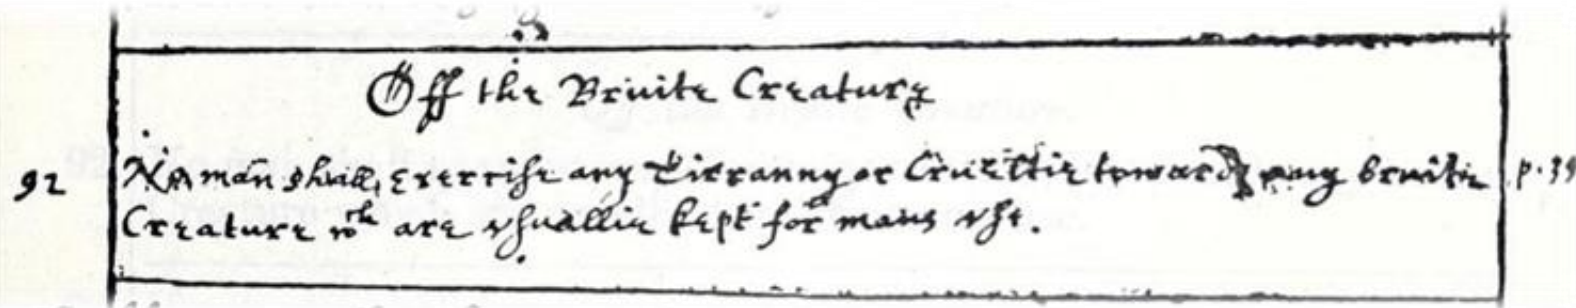 Off the Bruite Creature
92 No man shall, exercise any Tirranny or Crueltie towards any bruite p. 39
Creature wch are usuallie kept for mans use.